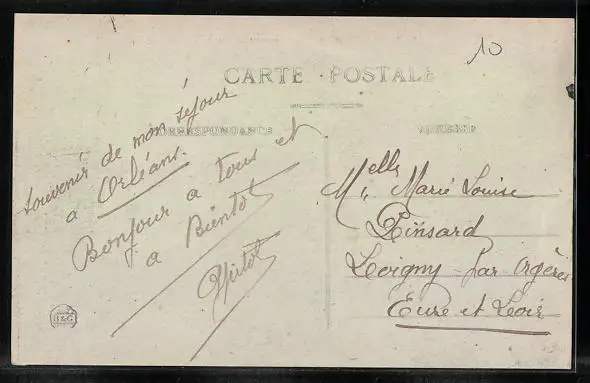 10
CARTE POSTALE
CORRESPONDANCE
ADRESSE
souvenir de mon séjour
a Orléans.
Bonjour a tous et
a Bientot
Melle Marie Louise
Pinsard
Levigny par Orgères
Eure et Loir
B&G